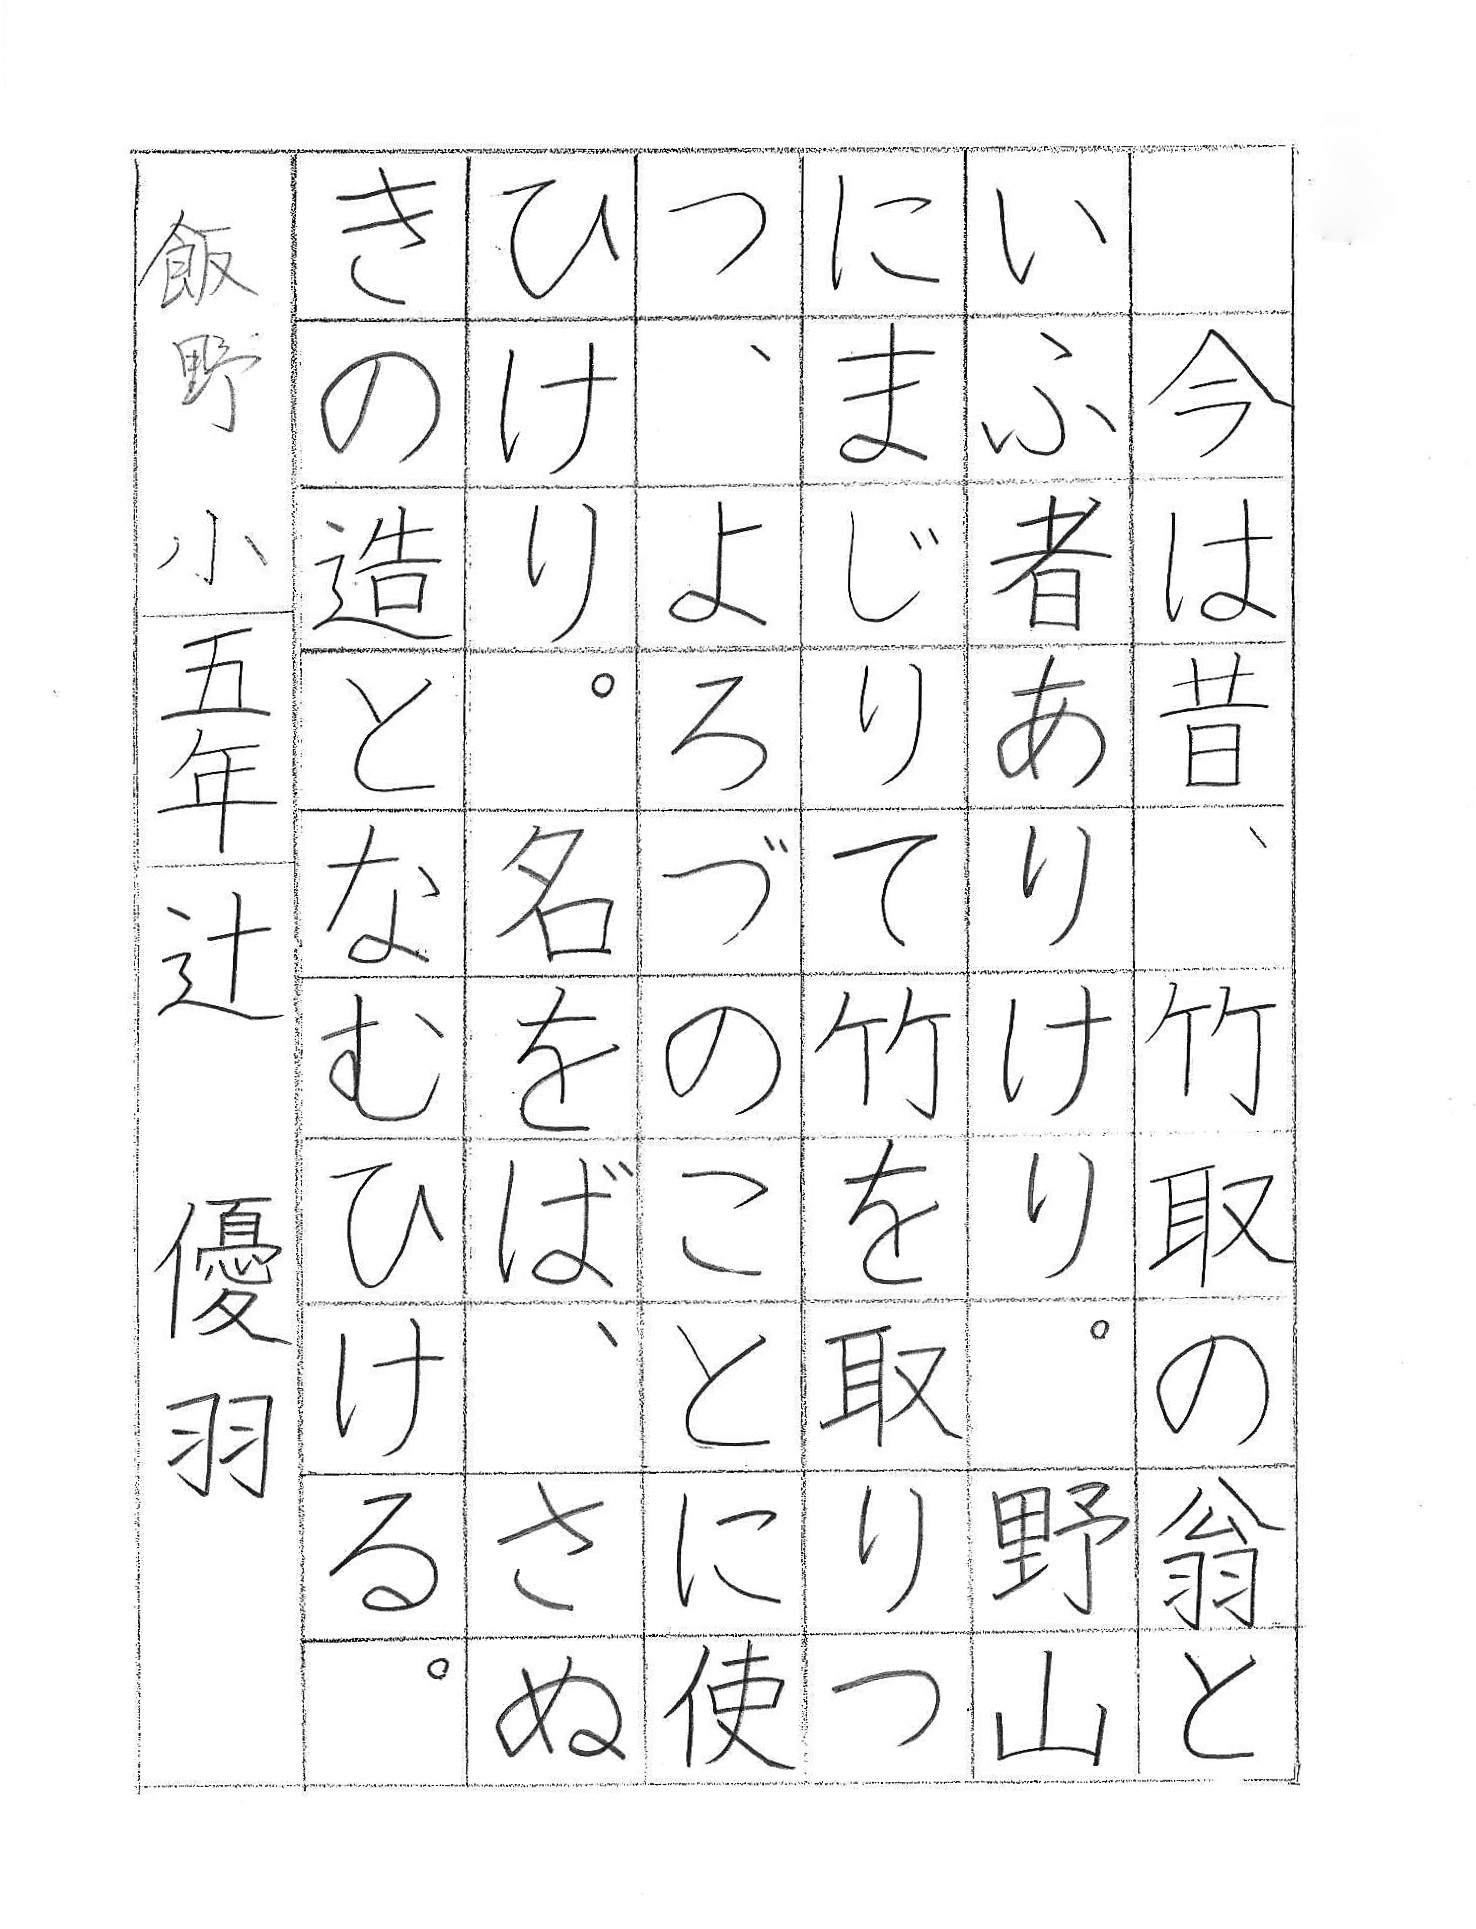 今は昔、竹取の翁と
いふ者ありけり。野山
にまじりて竹を取りつ
つ、よろづのことに使
ひけり。名をば、さぬ
きの造となむひける。
飯野小五年辻　優羽